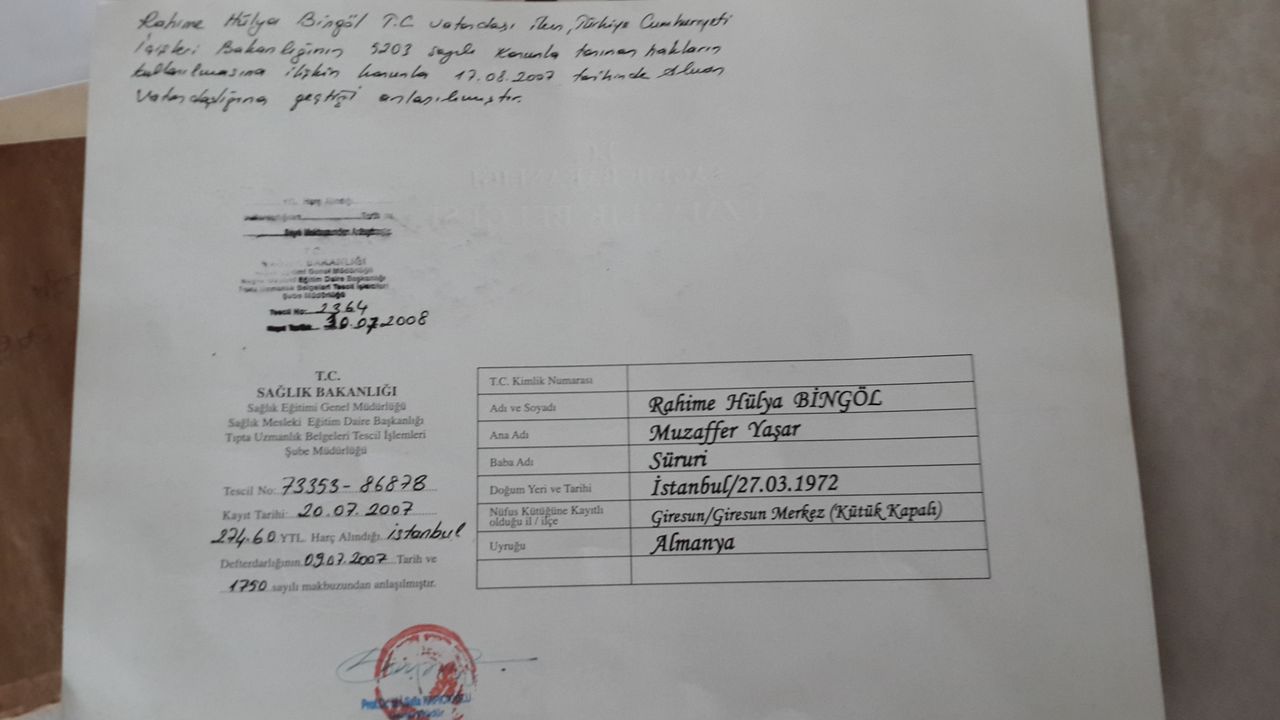 Rahime Hülya Bingöl T.C vatandaşı iken, Türkiye Cumhuriyeti
İçişleri Bakanlığının 5203 sayılı kanunla tanınan hakların
kullanılmasına ilişkin kanunla 17.08.2007 tarihinde Alman
Vatandaşlığına geçtiği anlaşılmıştır.
YTL. Harç Alındığı
Tarih ve
T.C.
SAĞLIK BAKANLIĞI
Sağlık Eğitimi Genel Müdürlüğü
Sağlık Mesleki Eğitim Daire Başkanlığı
Tıpta Uzmanlık Belgeleri Tescil İşlemleri
Şube Müdürlüğü
Tescil No: 2364
Kayıt Tarihi: 30.07.2008
T.C.
SAĞLIK BAKANLIĞI
Sağlık Eğitimi Genel Müdürlüğü
Sağlık Mesleki Eğitim Daire Başkanlığı
Tıpta Uzmanlık Belgeleri Tescil İşlemleri
Şube Müdürlüğü
Tescil No: 73353-86878
Kayıt Tarihi: 20.07.2007
274.60 YTL. Harç Alındığı. İstanbul
Defterdarlığının 09.07.2007 Tarih ve
1750 sayılı makbuzundan anlaşılmıştır.
T.C. Kimlik Numarası
Adı ve Soyadı Rahime Hülya BİNGÖL
Ana Adı Muzaffer Yaşar
Baba Adı Süruri
Doğum Yeri ve Tarihi İstanbul/27.03.1972
Nüfus Kütüğüne Kayıtlı
olduğu il / ilçe Giresun/Giresun Merkez (Kütük Kapalı)
Uyruğu Almanya